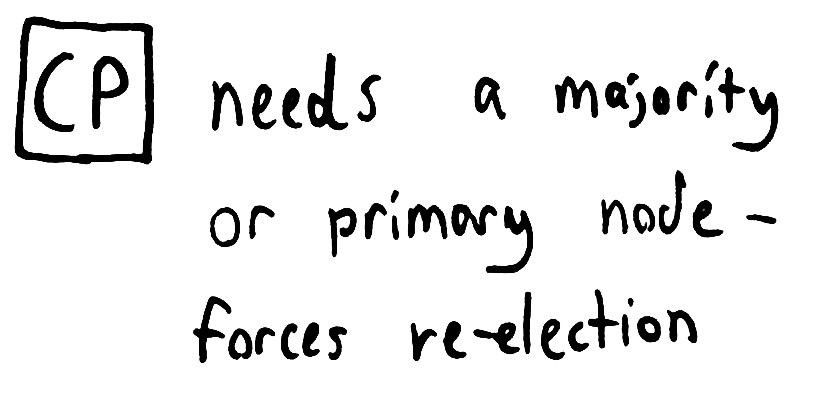 CP needs a majority
or primary node -
forces re-election